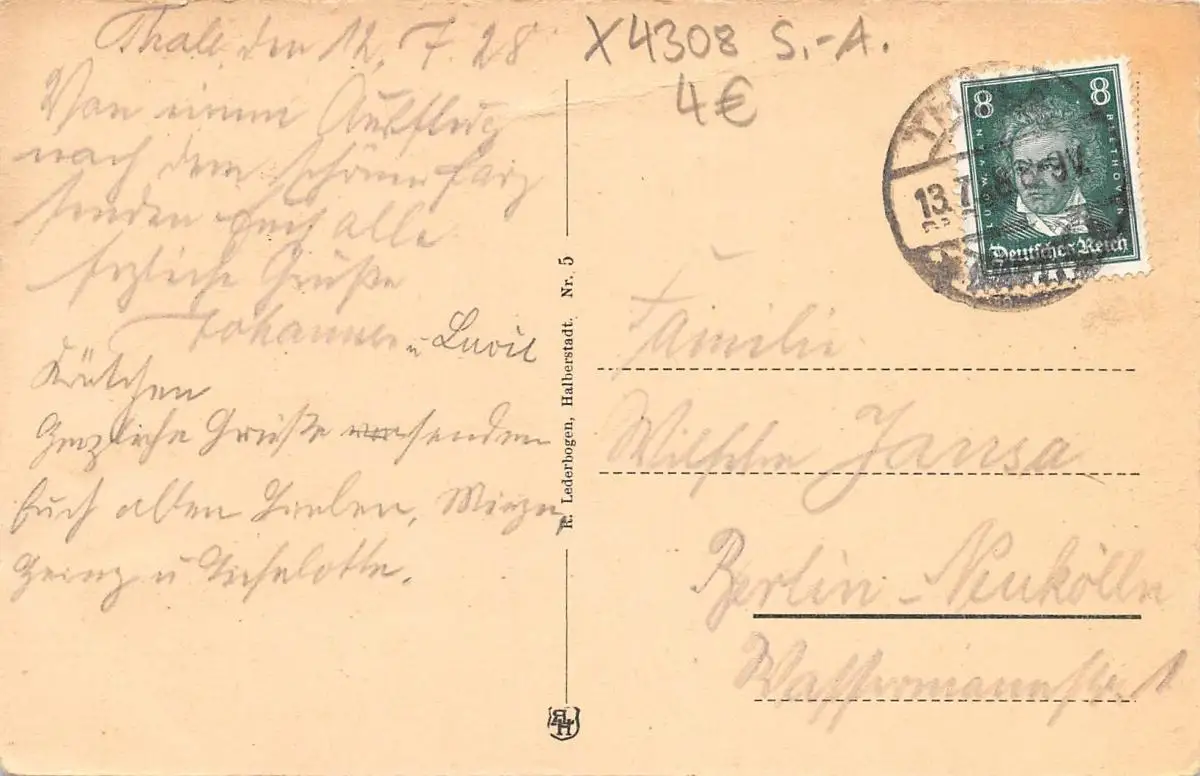 Thale, den 12. 7. 28
Von einem Ausflug
nach dem schönen Harz
senden Euch alle
herzliche Grüße
Johannes u
Kätchen
Herzliche Grüße senden
Euch allen Lieben,
Heinz u Liselotte.
X4308 S.-A.
4€
13.7. 9V
8 8
LUDWIG VAN BEETHOVEN
Deutsches Reich
Familie
Jansa
Berlin - Neukölln
Wassermannstr. 1
R. Lederbogen, Halberstadt. Nr. 5
RLH